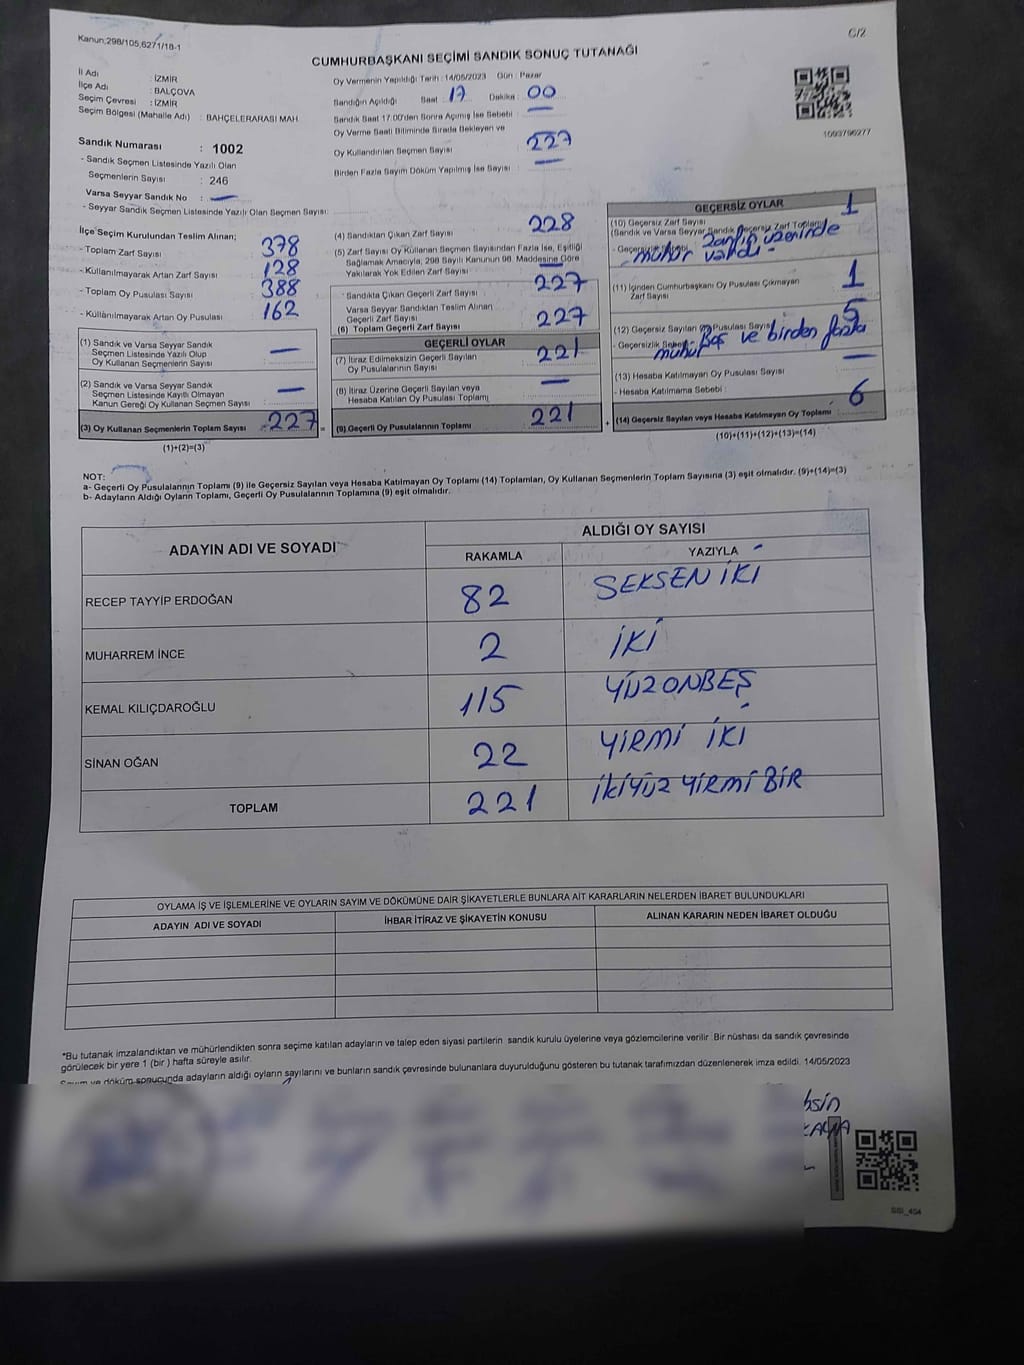 Kanun;298/105,6271/18-1
C/2
CUMHURBAŞKANI SEÇİMİ SANDIK SONUÇ TUTANAĞI
İl Adı : İZMİR
İlçe Adı : BALÇOVA
Seçim Çevresi : İZMİR
Seçim Bölgesi (Mahalle Adı) : BAHÇELERARASI MAH
Sandık Numarası : 1002
- Sandık Seçmen Listesinde Yazılı Olan
Seçmenlerin Sayısı : 246
Varsa Seyyar Sandık No :
- Seyyar Sandık Seçmen Listesinde Yazılı Olan Seçmen Sayısı:
Oy Vermenin Yapıldığı Tarih : 14/05/2023 Gün : Pazar
Sandığın Açıldığı Saat : 17 Dakika : 00
Sandık Saat 17:00'den Sonra Açımış İse Sebebi :
Oy Verme Saati Bitiminde Sırada Bekleyen ve
Oy Kullandırılan Seçmen Sayısı 227
Birden Fazla Sayım Döküm Yapılmış İse Sayısı :
1093796277
İlçe Seçim Kurulundan Teslim Alınan;
- Toplam Zarf Sayısı 378
- Kullanılmayarak Artan Zarf Sayısı 128
- Toplam Oy Pusulası Sayısı 388
- Kullanılmayarak Artan Oy Pusulası 162
(1) Sandık ve Varsa Seyyar Sandık
Seçmen Listesinde Yazılı Olup
Oy Kullanan Seçmenlerin Sayısı
(2) Sandık ve Varsa Seyyar Sandık
Seçmen Listesinde Kayıtlı Olmayan
Kanun Gereği Oy Kullanan Seçmen Sayısı
(3) Oy Kullanan Seçmenlerin Toplam Sayısı 227 =
(1)+(2)=(3)
(4) Sandıktan Çıkan Zarf Sayısı 228
(5) Zarf Sayısı Oy Kullanan Seçmen Sayısından Fazla İse, Eşitliği
Sağlamak Amacıyla, 298 Sayılı Kanunun 98. Maddesine Göre
Yakılarak Yok Edilen Zarf Sayısı
Sandıkta Çıkan Geçerli Zarf Sayısı 227
Varsa Seyyar Sandıktan Teslim Alınan
Geçerli Zarf Sayısı
(6) Toplam Geçerli Zarf Sayısı 227
GEÇERLİ OYLAR
(7) İtiraz Edilmeksizin Geçerli Sayılan
Oy Pusulalarının Sayısı 221
(8) İtiraz Üzerine Geçerli Sayılan veya
Hesaba Katılan Oy Pusulası Toplamı
(9) Geçerli Oy Pusulalarının Toplamı 221 +
GEÇERSİZ OYLAR
(10) Geçersiz Zarf Sayısı 1
(Sandık ve Varsa Seyyar Sandık Geçersiz Zarf Toplamı)
- Geçersizlik Sebebi
zarfın üzerinde
mühür vardı
(11) İçinden Cumhurbaşkanı Oy Pusulası Çıkmayan
Zarf Sayısı 1
(12) Geçersiz Sayılan Oy Pusulası Sayısı 5
- Geçersizlik Sebebi
Boş ve birden fazla
mühür
(13) Hesaba Katılmayan Oy Pusulası Sayısı
- Hesaba Katılmama Sebebi :
(14) Geçersiz Sayılan veya Hesaba Katılmayan Oy Toplamı 6
(10)+(11)+(12)+(13)=(14)
NOT:
a- Geçerli Oy Pusulalarının Toplamı (9) ile Geçersiz Sayılan veya Hesaba Katılmayan Oy Toplamı (14) Toplamları, Oy Kullanan Seçmenlerin Toplam Sayısına (3) eşit olmalıdır. (9)+(14)=(3)
b- Adayların Aldığı Oyların Toplamı, Geçerli Oy Pusulalarının Toplamına (9) eşit olmalıdır.
ADAYIN ADI VE SOYADI
ALDIĞI OY SAYISI
RAKAMLA YAZIYLA
RECEP TAYYİP ERDOĞAN 82 SEKSEN İKİ
MUHARREM İNCE 2 İKİ
KEMAL KILIÇDAROĞLU 115 YÜZONBEŞ
SİNAN OĞAN 22 YİRMİ İKİ
TOPLAM 221 İKİYÜZ YİRMİ BİR
OYLAMA İŞ VE İŞLEMLERİNE VE OYLARIN SAYIM VE DÖKÜMÜNE DAİR ŞİKAYETLERLE BUNLARA AİT KARARLARIN NELERDEN İBARET BULUNDUKLARI
ADAYIN ADI VE SOYADI İHBAR İTİRAZ VE ŞİKAYETİN KONUSU ALINAN KARARIN NEDEN İBARET OLDUĞU
*Bu tutanak imzalandıktan ve mühürlendikten sonra seçime katılan adayların ve talep eden siyasi partilerin sandık kurulu üyelerine veya gözlemcilerine verilir. Bir nüshası da sandık çevresinde
görülecek bir yere 1 (bir) hafta süreyle asılır.
Sayım ve döküm sonucunda adayların aldığı oyların sayılarını ve bunların sandık çevresinde bulunanlara duyurulduğunu gösteren bu tutanak tarafımızdan düzenlenerek imza edildi. 14/05/2023
SSI_404